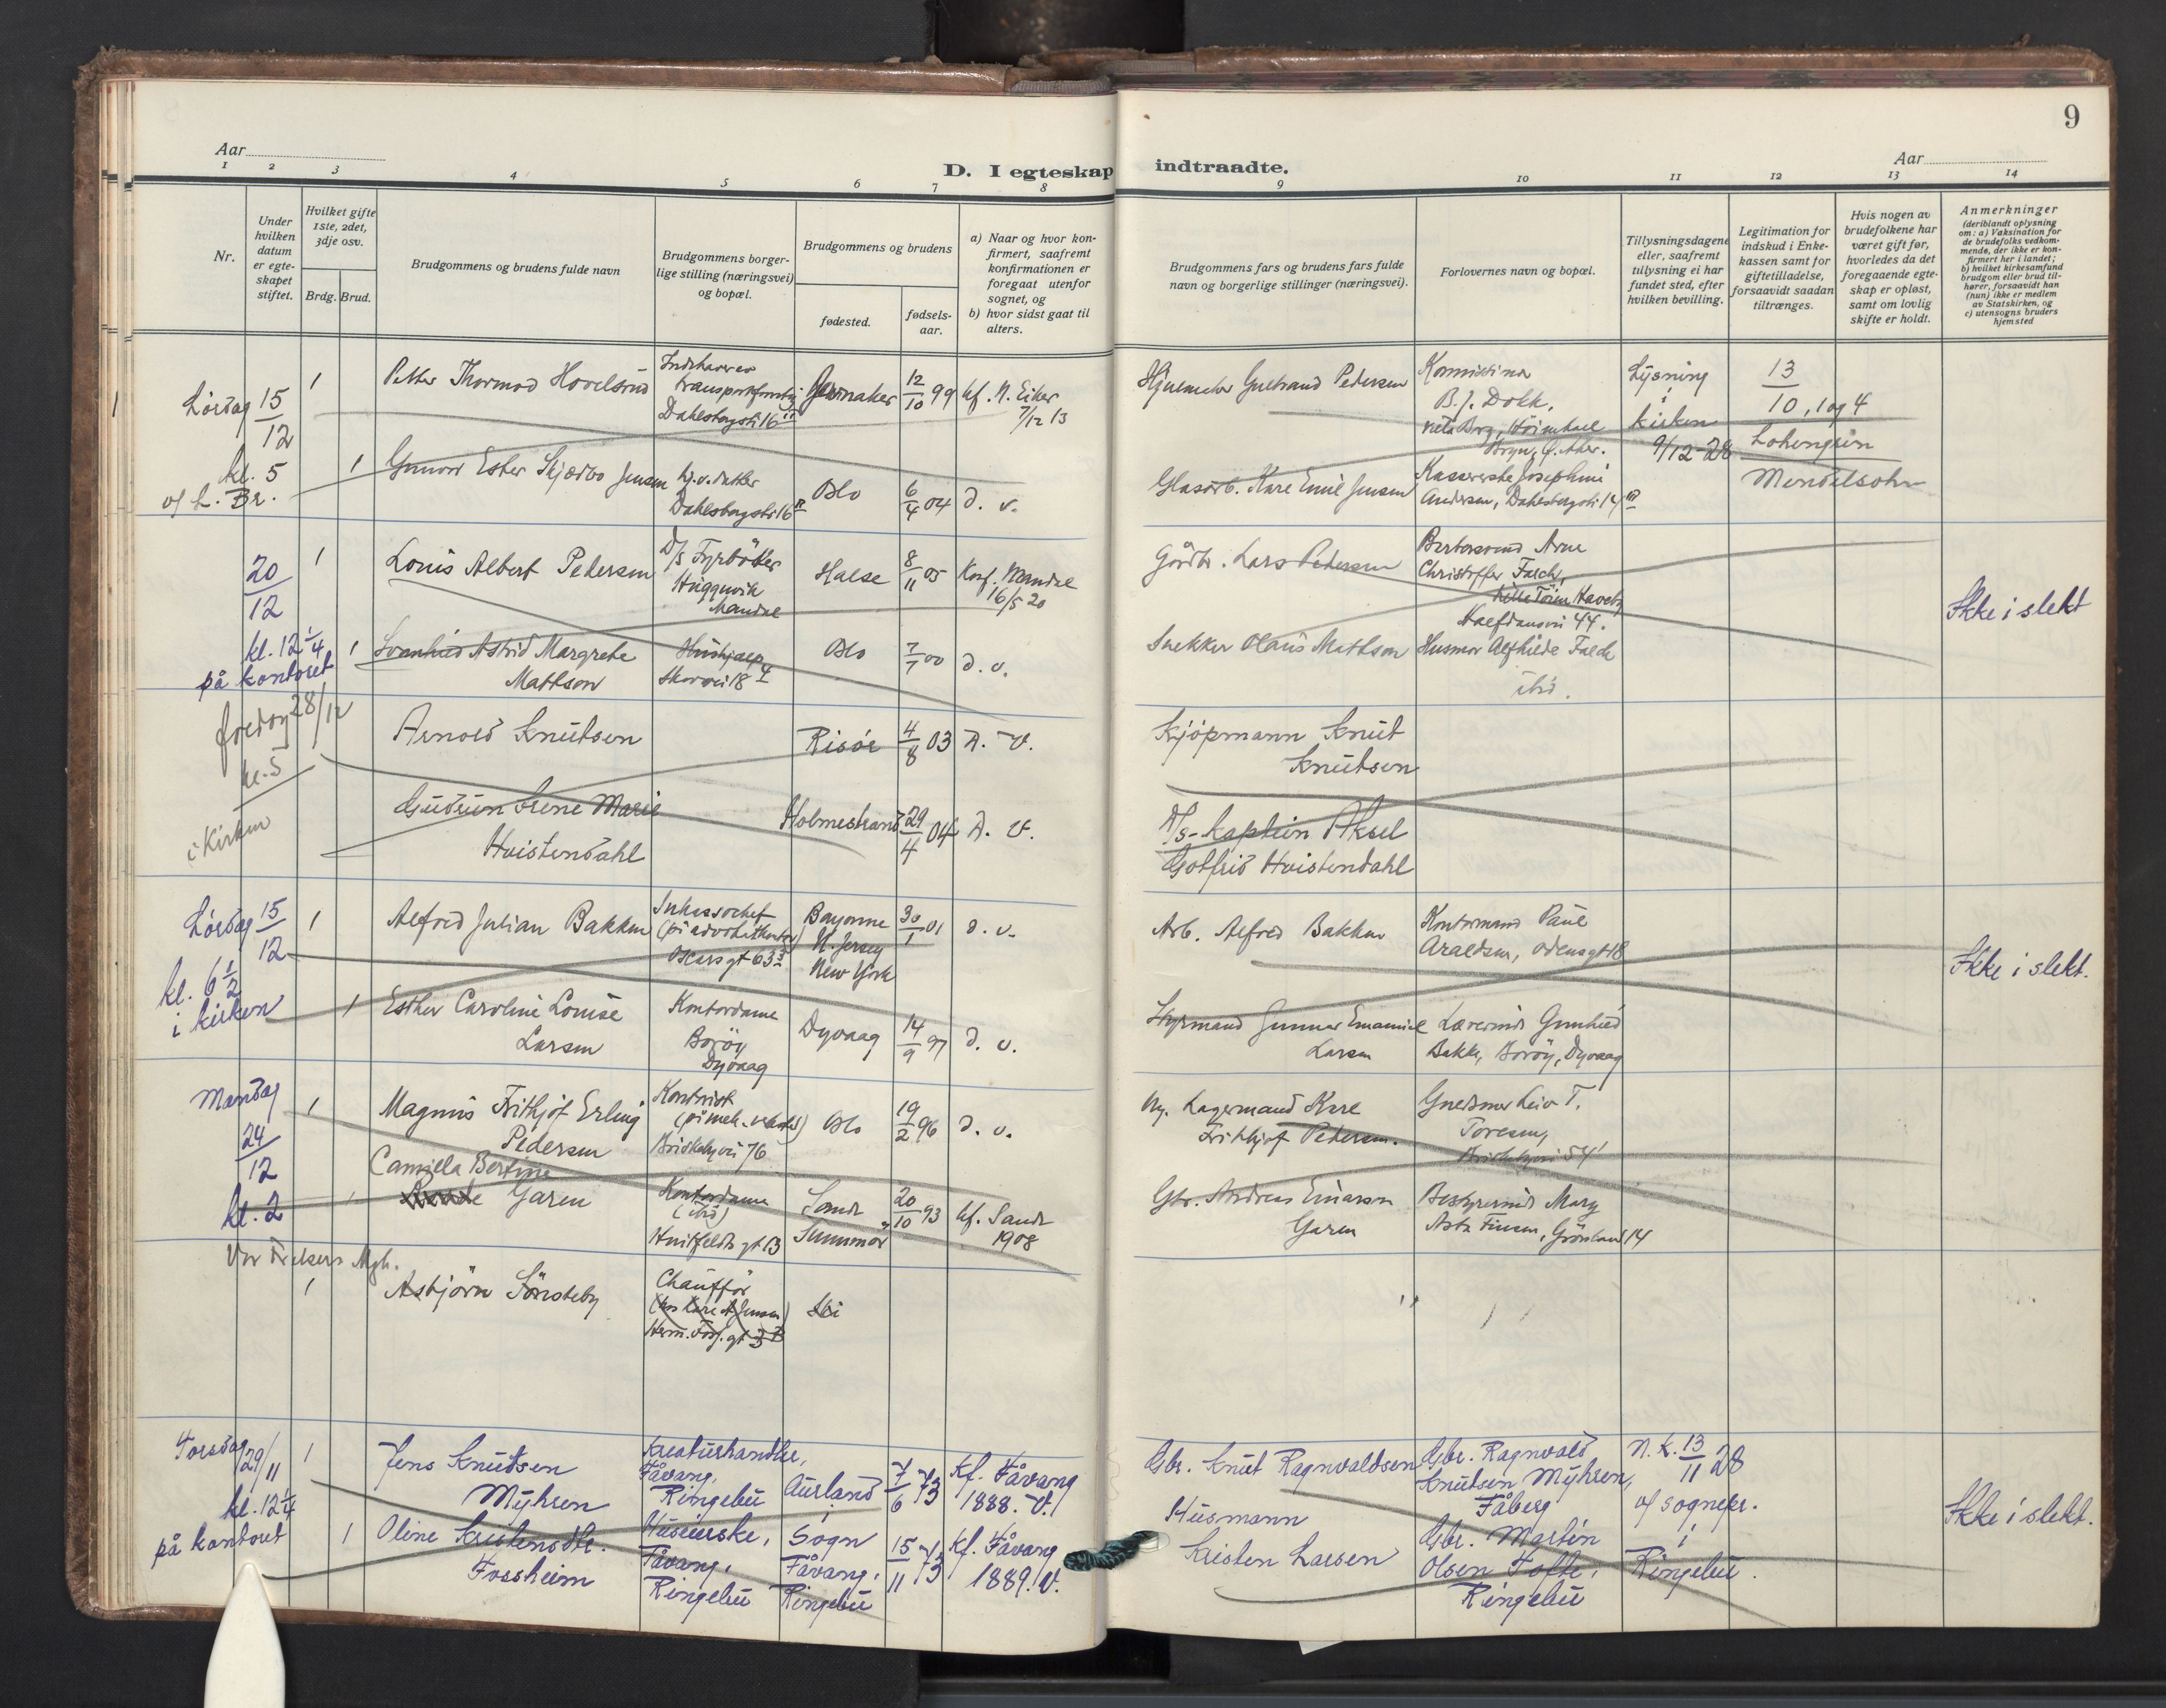 9
Aar
Aar
D. I egteskap indtraadte.
1 2 3 4 5 6 7 8 9 10 11 12 13 14
Nr.
Under
hvilken
datum
er egte-
skapet
stiftet.
Hvilket gifte
1ste, 2det,
3dje osv.
Brdg.
Brud.
Brudgommens og brudens fulde navn
Brudgommens borger-
lige stilling (næringsvei)
og bopæl.
Brudgommens og brudens
fødested.
fødsels-
aar.
a) Naar og hvor kon-
firmert, saafremt
konfirmationen er
foregaat utenfor
sognet, og
b) hvor sidst gaat til
alters.
Brudgommens fars og brudens fars fulde
navn og borgerlige stillinger (næringsvei).
Forlovernes navn og bopæl.
Tillysningsdagene
eller, saafremt
tillysning ei har
fundet sted, efter
hvilken bevilling.
Legitimation for
indskud i Enke-
kassen samt for
giftetilladelse,
forsaavidt saadan
tiltrænges.
Hvis nogen av
brudefolkene har
været gift før,
hvorledes da det
foregaaende egte-
skap er opløst,
samt om lovlig
skifte er holdt.
Anmerkninger
(deriblandt oplysning
om: a) Vaksination for
de brudefolks vedkom-
mende, der ikke er kon-
firmert her i landet;
b) hvilket kirkesamfund
brudgom eller brud til-
hører, forsaavidt han
(hun) ikke er medlem
av Statskirken, og
c) utensogns bruders
hjemsted
Lørdag 15/12
kl. 5
af L. Br.
1
Petter Thormod Hovelsrud
Indehaver av
transportforretn.
Dahlsbergsti 16 II
12/10 99
kf. N. Eiker
7/12 13
Gudbrand Pedersen
B. J. Dokk,
Lysning
i
kirken
9/12-28
13
10, 1 og 4
Lohengrin
Mendelsohn
1
Gunvor Ester Skjærbo Jensen
hj.v. datter
Dahlsbergsti 16 II
Oslo
6/4 04
d. v.
Glasarb. Kare Emil Jensen
Kassererske Josephine
Andersen, Dahlsbergsti 14 III
20/12
kl. 12 1/4
på kontoret
1
Louis Albert Pedersen
D/s Fyrbøter
Mandal
Halse
8/11 05
Konf. Mandal
16/5 20
Gårdbr. Lars Pedersen
Arne
Christoffer Falch,
Lille Tøien Haveby
Halfdansvei 44.
Ikke i slekt
1
Svanhild Astrid Margrete
Mattson
Hushjælp
Skovvei 18 4
Oslo
7/7 00
d. v.
Snekker Olaus Mattson
Husmor Alfhilde Falch
ibid.
fredag 28/12
kl. 5
i Kirken
Arnold Knutsen
Risør
4/8 03
d. v.
Kjøpmann Knut
Knutsen
Gudrun Irene Marie
Hvistendahl
Holmestrand
29/4 04
d. v.
D/s-kaptein Aksel
Gotfrid Hvistendahl
Lørdag 15/12
kl. 6 1/2
i kirken
1
Alfred Julian Bakken
Inkassochef
(på advokatkontor)
Oscarsgt 63 3
Bayonne
N. Jersey
New York
30/1 01
d. v.
Arb. Alfred Bakken
Kontormand Paul
Araldsen, Odensgt 18
Ikke i slekt.
1
Esther Caroline Louise
Larsen
Kontordame
Borøy
Dyvaag
Dyvaag
14/9 97
d. v.
Styrmand Gunnar Emanuel
Larsen
Lærerinde Gunhild
Bakke, Borøy, Dyvaag
Mandag
24/12
kl. 2
1
Magnus Frithjof Erling
Pedersen
Kontorist
(på mek. verksted)
Briskebyvei 76
Oslo
19/2 96
d. v.
Lagermand Kare
Frithjof Pedersen.
Leiv T.
Toresen,
Briskebyvei 54
1
Camilla Bertine
Garen
Kontordame
(ibid)
Huitfeldts gt 13
Sande
Sunnmør
20/10 93
kf. Sande
1908
Gbr. Andreas Einarsen
Garen
Bestyrerinde Mary
Asta Finsen, Grønland 14
Vor Frelsers Mgh.
1
Asbjørn Sønsteby
Chauffør
(hos Kare A Jensen)
Herm. Foss. gt 3 B
Ski
Torsdag
29/11
kl. 12 1/4
på kontoret
1
Jens Knudsen
Myhren
Kreaturhandler,
Fåvang,
Ringebu
Aurland
i
Sogn
7/6 73
Kf. Fåvang
1888. V.
Gbr. Knut Ragnvaldsen
Gbr. Ragnvald
Knutsen Myhren,
Fåberg
N. k. 13/11 28
af sognepr.
i
Ringebu.
Ikke i slekt.
1
Oline Kristensdtr.
Fossheim
Husierske,
Fåvang,
Ringebu
Fåvang,
Ringebu
15/11 73
Kf. Fåvang
1889. V.
Husmann
Kristen Larsen
Gbr. Martin
Olsen Tofte,
Ringebu